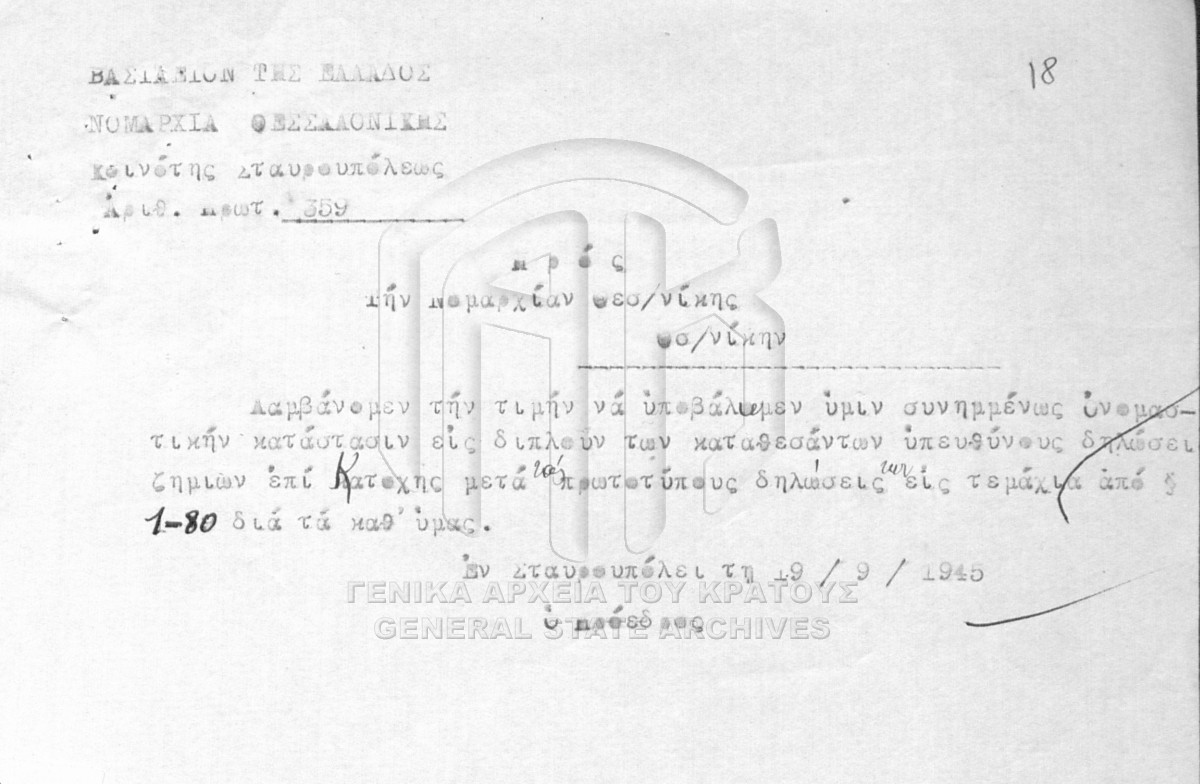 18
ΒΑΣΙΛΕΙΟΝ ΤΗΣ ΕΛΛΑΔΟΣ
ΝΟΜΑΡΧΙΑ ΘΕΣΣΑΛΟΝΙΚΗΣ
Κοινότης Σταυρουπόλεως
Αριθ. Πρωτ. 359
Π ρ ό ς
Τήν Νομαρχίαν Θεσ/νίκης
Θσ/νίκην
Λαμβάνομεν τήν τιμήν νά ὑποβάλωμεν ὑμιν συνημμένως ὀνομασ-
τικήν κατάστασιν είς διπλούν των καταθεσάντων ὑπευθύνους δηλώσει
ζημιών ἐπί Κατοχης μετά τάς πρωτοτύπους δηλώσεις των είς τεμάχια ἀπό §
1-80 διά τά καθ' ὑμας.
Ἐν Σταυρουπόλει τη 19 / 9 / 1945
Ὁ Πρόεδρος
ΓΕΝΙΚΑ ΑΡΧΕΙΑ ΤΟΥ ΚΡΑΤΟΥΣ
GENERAL STATE ARCHIVES